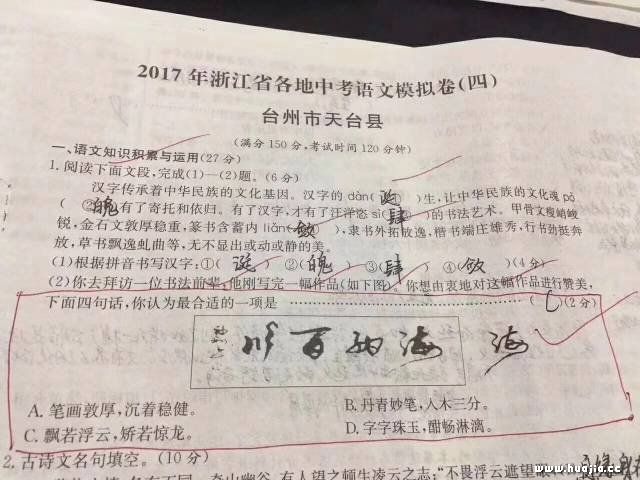 2017年浙江省各地中考语文模拟卷(四)
台州市天台县
(满分150分,考试时间120分钟)
一、语文知识积累与运用(27分)
1.阅读下面文段,完成(1)—(2)题。(6分)
汉字传承着中华民族的文化基因。汉字的dàn(诞)生,让中华民族的文化魂pò
(②魄)有了寄托和依归。有了汉字,才有了汪洋恣sì(③肆)的书法艺术。甲骨文瘦峭峻
锐,金石文敦厚稳重,篆书含蓄内liǎn(敛),隶书外拓放逸,楷书端庄雄秀,行书劲挺奔
放,草书飘逸虬曲等,无不显出或动或静的美。
(1)根据拼音书写汉字:①(诞)②(魄)③(肆)④(敛)(4分)
(2)你去拜访一位书法前辈,他刚写完一幅作品(如下图)。你想由衷地对这幅作品进行赞美,
下面四句话,你认为最合适的一项是……………………(C)(2分)
海纳百川
海
A.笔画敦厚,沉着稳健。 B.丹青妙笔,入木三分。
C.飘若浮云,矫若惊龙。 D.字字珠玉,酣畅淋漓。
2.古诗文名句填空。(10分)
有人望之顿生凌云之志:"不畏浮云遮望眼
www.huajia.cc